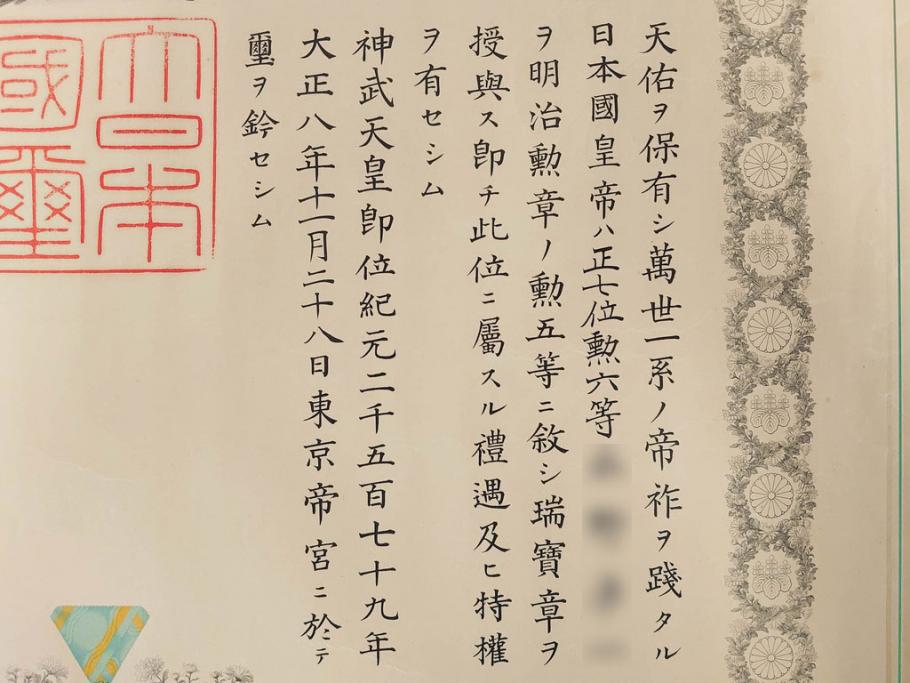 天佑ヲ保有シ萬世一系ノ帝祚ヲ踐タル
日本國皇帝ハ正七位勲六等
ヲ明治勲章ノ勲五等ニ敘シ瑞寶章ヲ
授與ス卽チ此位ニ屬スル禮遇及ヒ特權
ヲ有セシム
神武天皇卽位紀元二千五百七十九年
大正八年十一月二十八日東京帝宮ニ於テ
璽ヲ鈐セシム
大日本
國璽